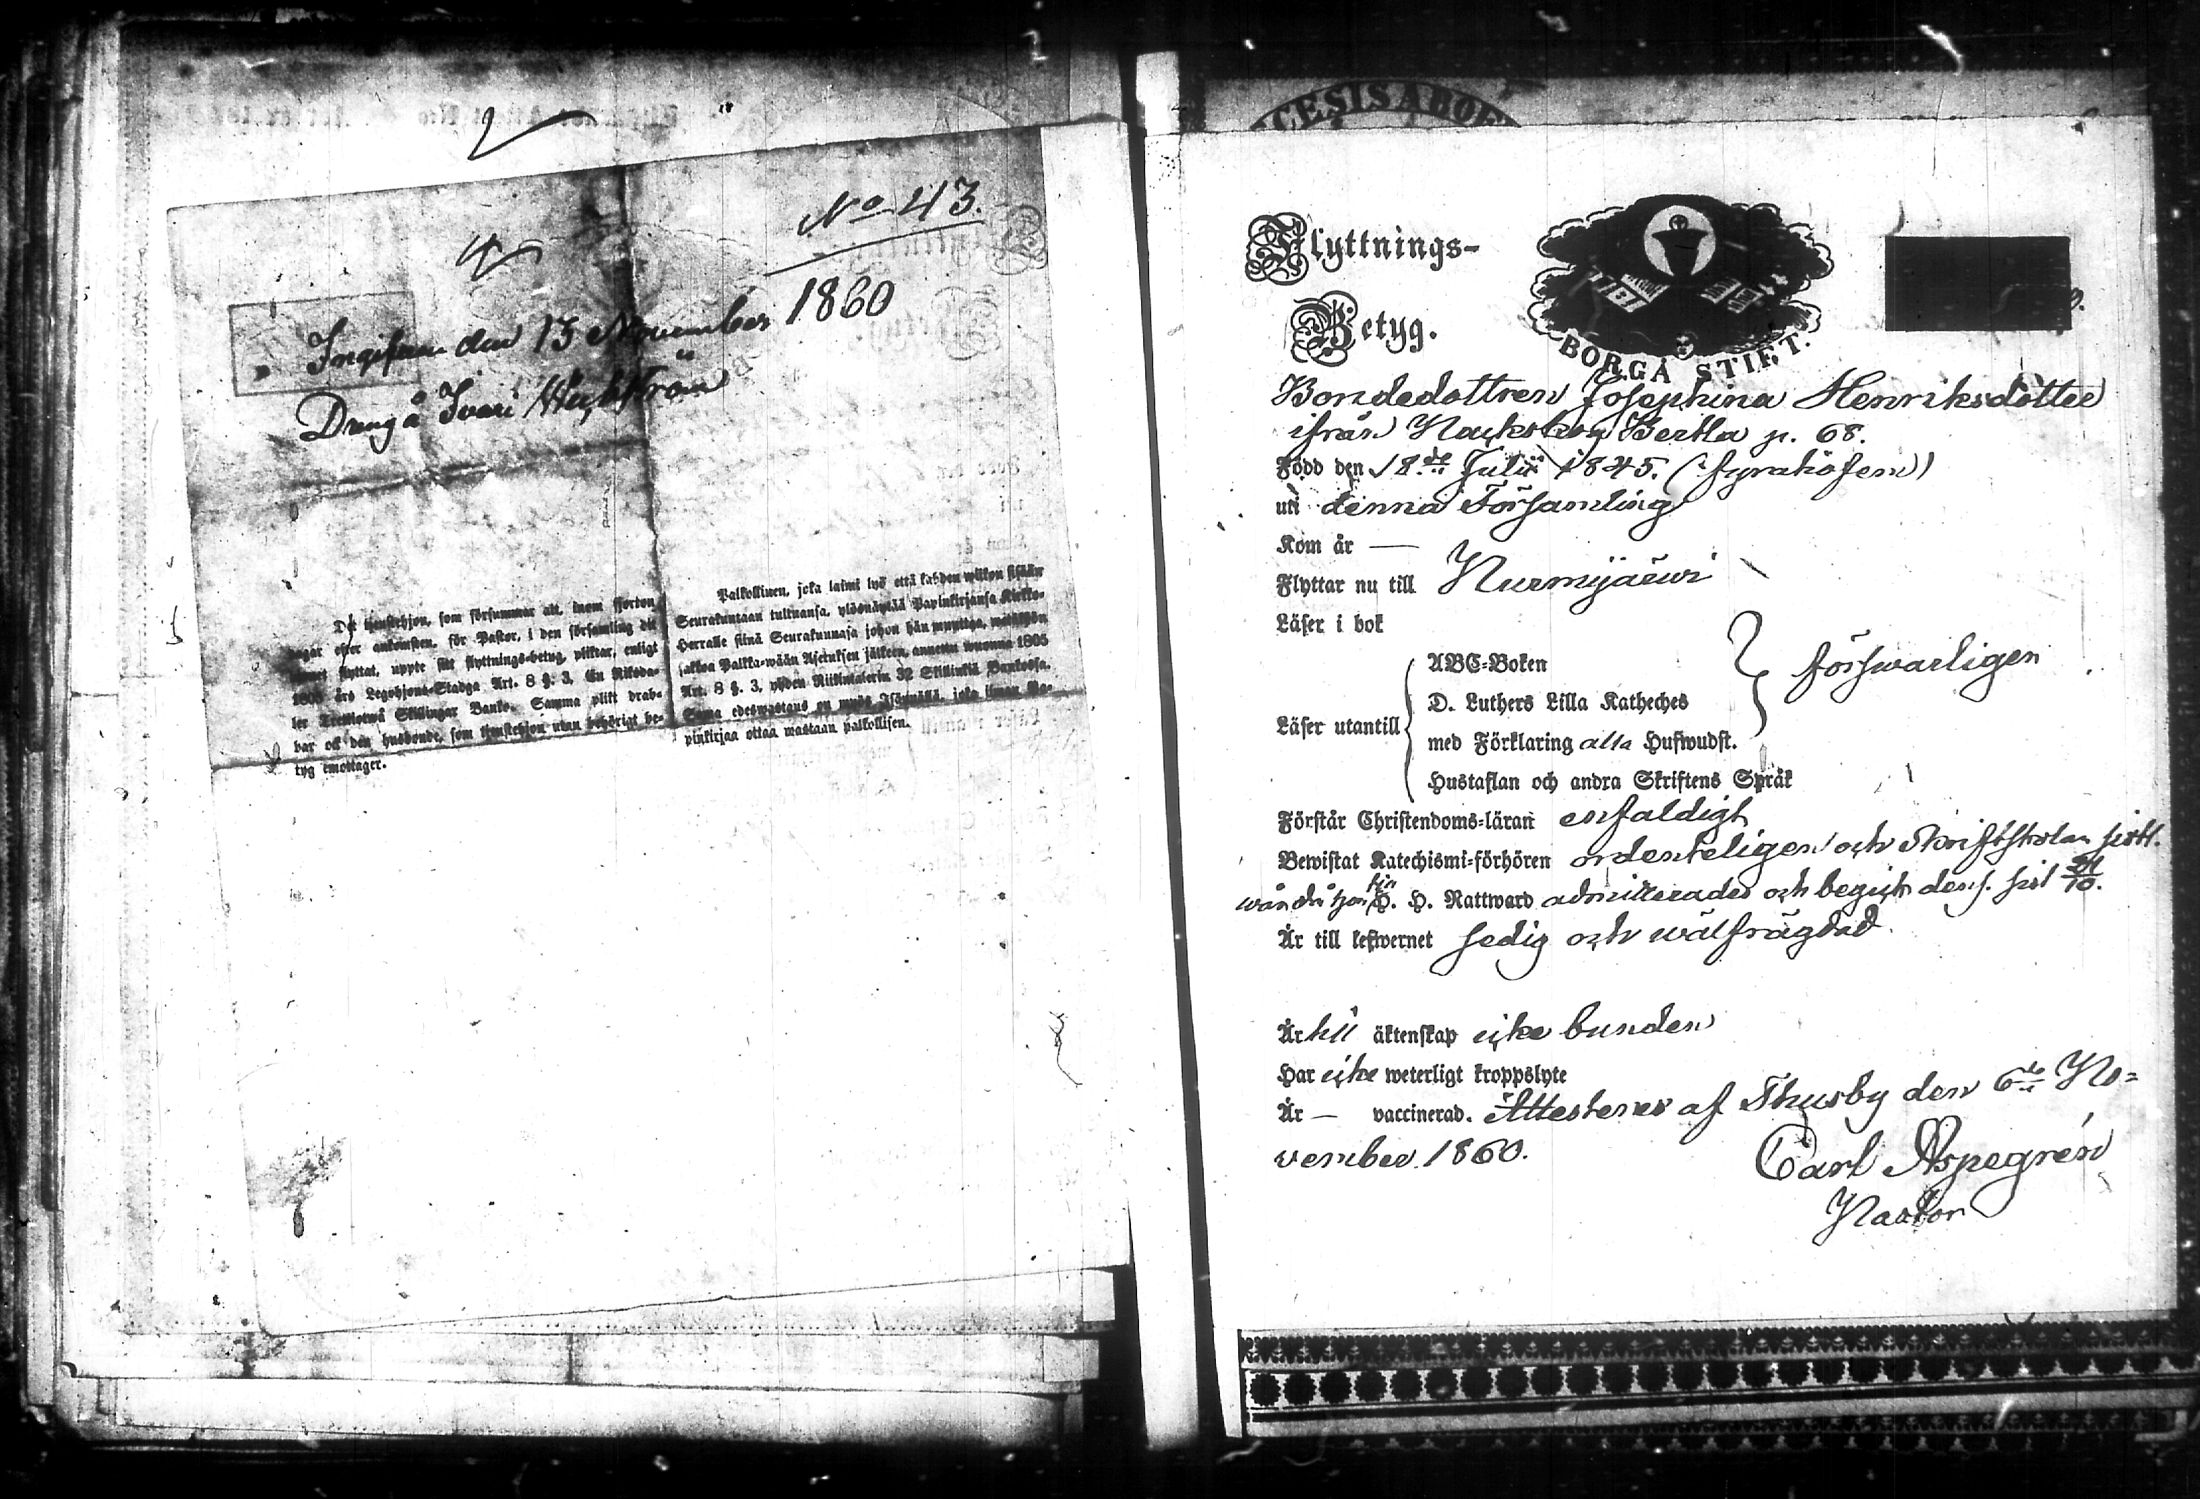 No 43.
den 13 November 1860
Dreng å
Det tjenstehjon, som försummar att, inom fjorton
dagar efter ankomsten, för Pastor, i den församling dit
hjonet flyttat, uppte sitt flyttnings-betyg, pliktar, enligt
1805 års Legohjons-Stadga Art. 8 §. 3, En Riksda-
ler Trettiotwå Skillingar Banko. Samma plikt drab-
bar ock den husbonde, som tjenstehjon utan behörigt be-
tyg emottager.
Palkollinen, joka laimi lyö että kahden wiikon sisään
Seurakuntaan tultuansa, ylösnäyttää Papinkirjansa Kirkko-
Herralle siinä Seurakunnasa johon hän muuttaa, wetäköön
sakkoa Palkka-wään Asetuksen jälkeen, annettu wuonna 1805
Art. 8 §. 3, yhden Riikintalerin 32 Skillinkiä Bankossa.
Sama edeswastaus on myös Isännällä, joka ilman Pa-
pinkirjaa ottaa wastaan palkollisen.
CESIS ABOE
Flyttnings-
Betyg.
BORGÅ STIFT.
Bondedottren Josephina Henriksdotter
ifrån Nackskog Bertla p. 68.
Född den 18de Julii 1845. (fyratiofem)
uti denna Församling
Kom år —
Flyttar nu till Nurmijärwi
Läser i bok
ABC-Boken
D. Luthers Lilla Katheches
Läser utantill
med Förklaring alla Hufwudst.
Hustaflan och andra Skriftens Språk
förswarligen
Förstår Christendoms-läran enfaldigt
Bewistat Katechismi-förhören ordenteligen och Skriftskolan sistl.
wår då hon till H. H. Nattward admitterades och begick dens. sist
Är till lefwernet sedig och wälfrägdad
Är till äktenskap icke bunden
Har icke weterligt kroppslyte
Är — vaccinerad. Attesteres af Thusby den 6te No-
vember 1860.
Carl Aspegrén
Pastor